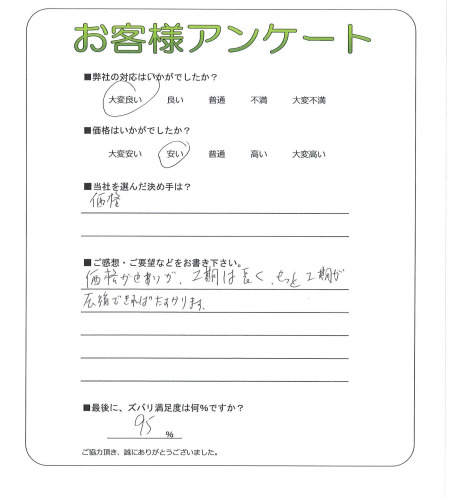 お客様アンケート
■弊社の対応はいかがでしたか？
大変良い 良い 普通 不満 大変不満
■価格はいかがでしたか？
大変安い 安い 普通 高い 大変高い
■当社を選んだ決め手は？
価格
■ご感想・ご要望などをお書き下さい。
価格が 、工期は長く、もっと工期が
できればたすかります。
■最後に、ズバリ満足度は何%ですか？
95 %
ご協力頂き、誠にありがとうございました。